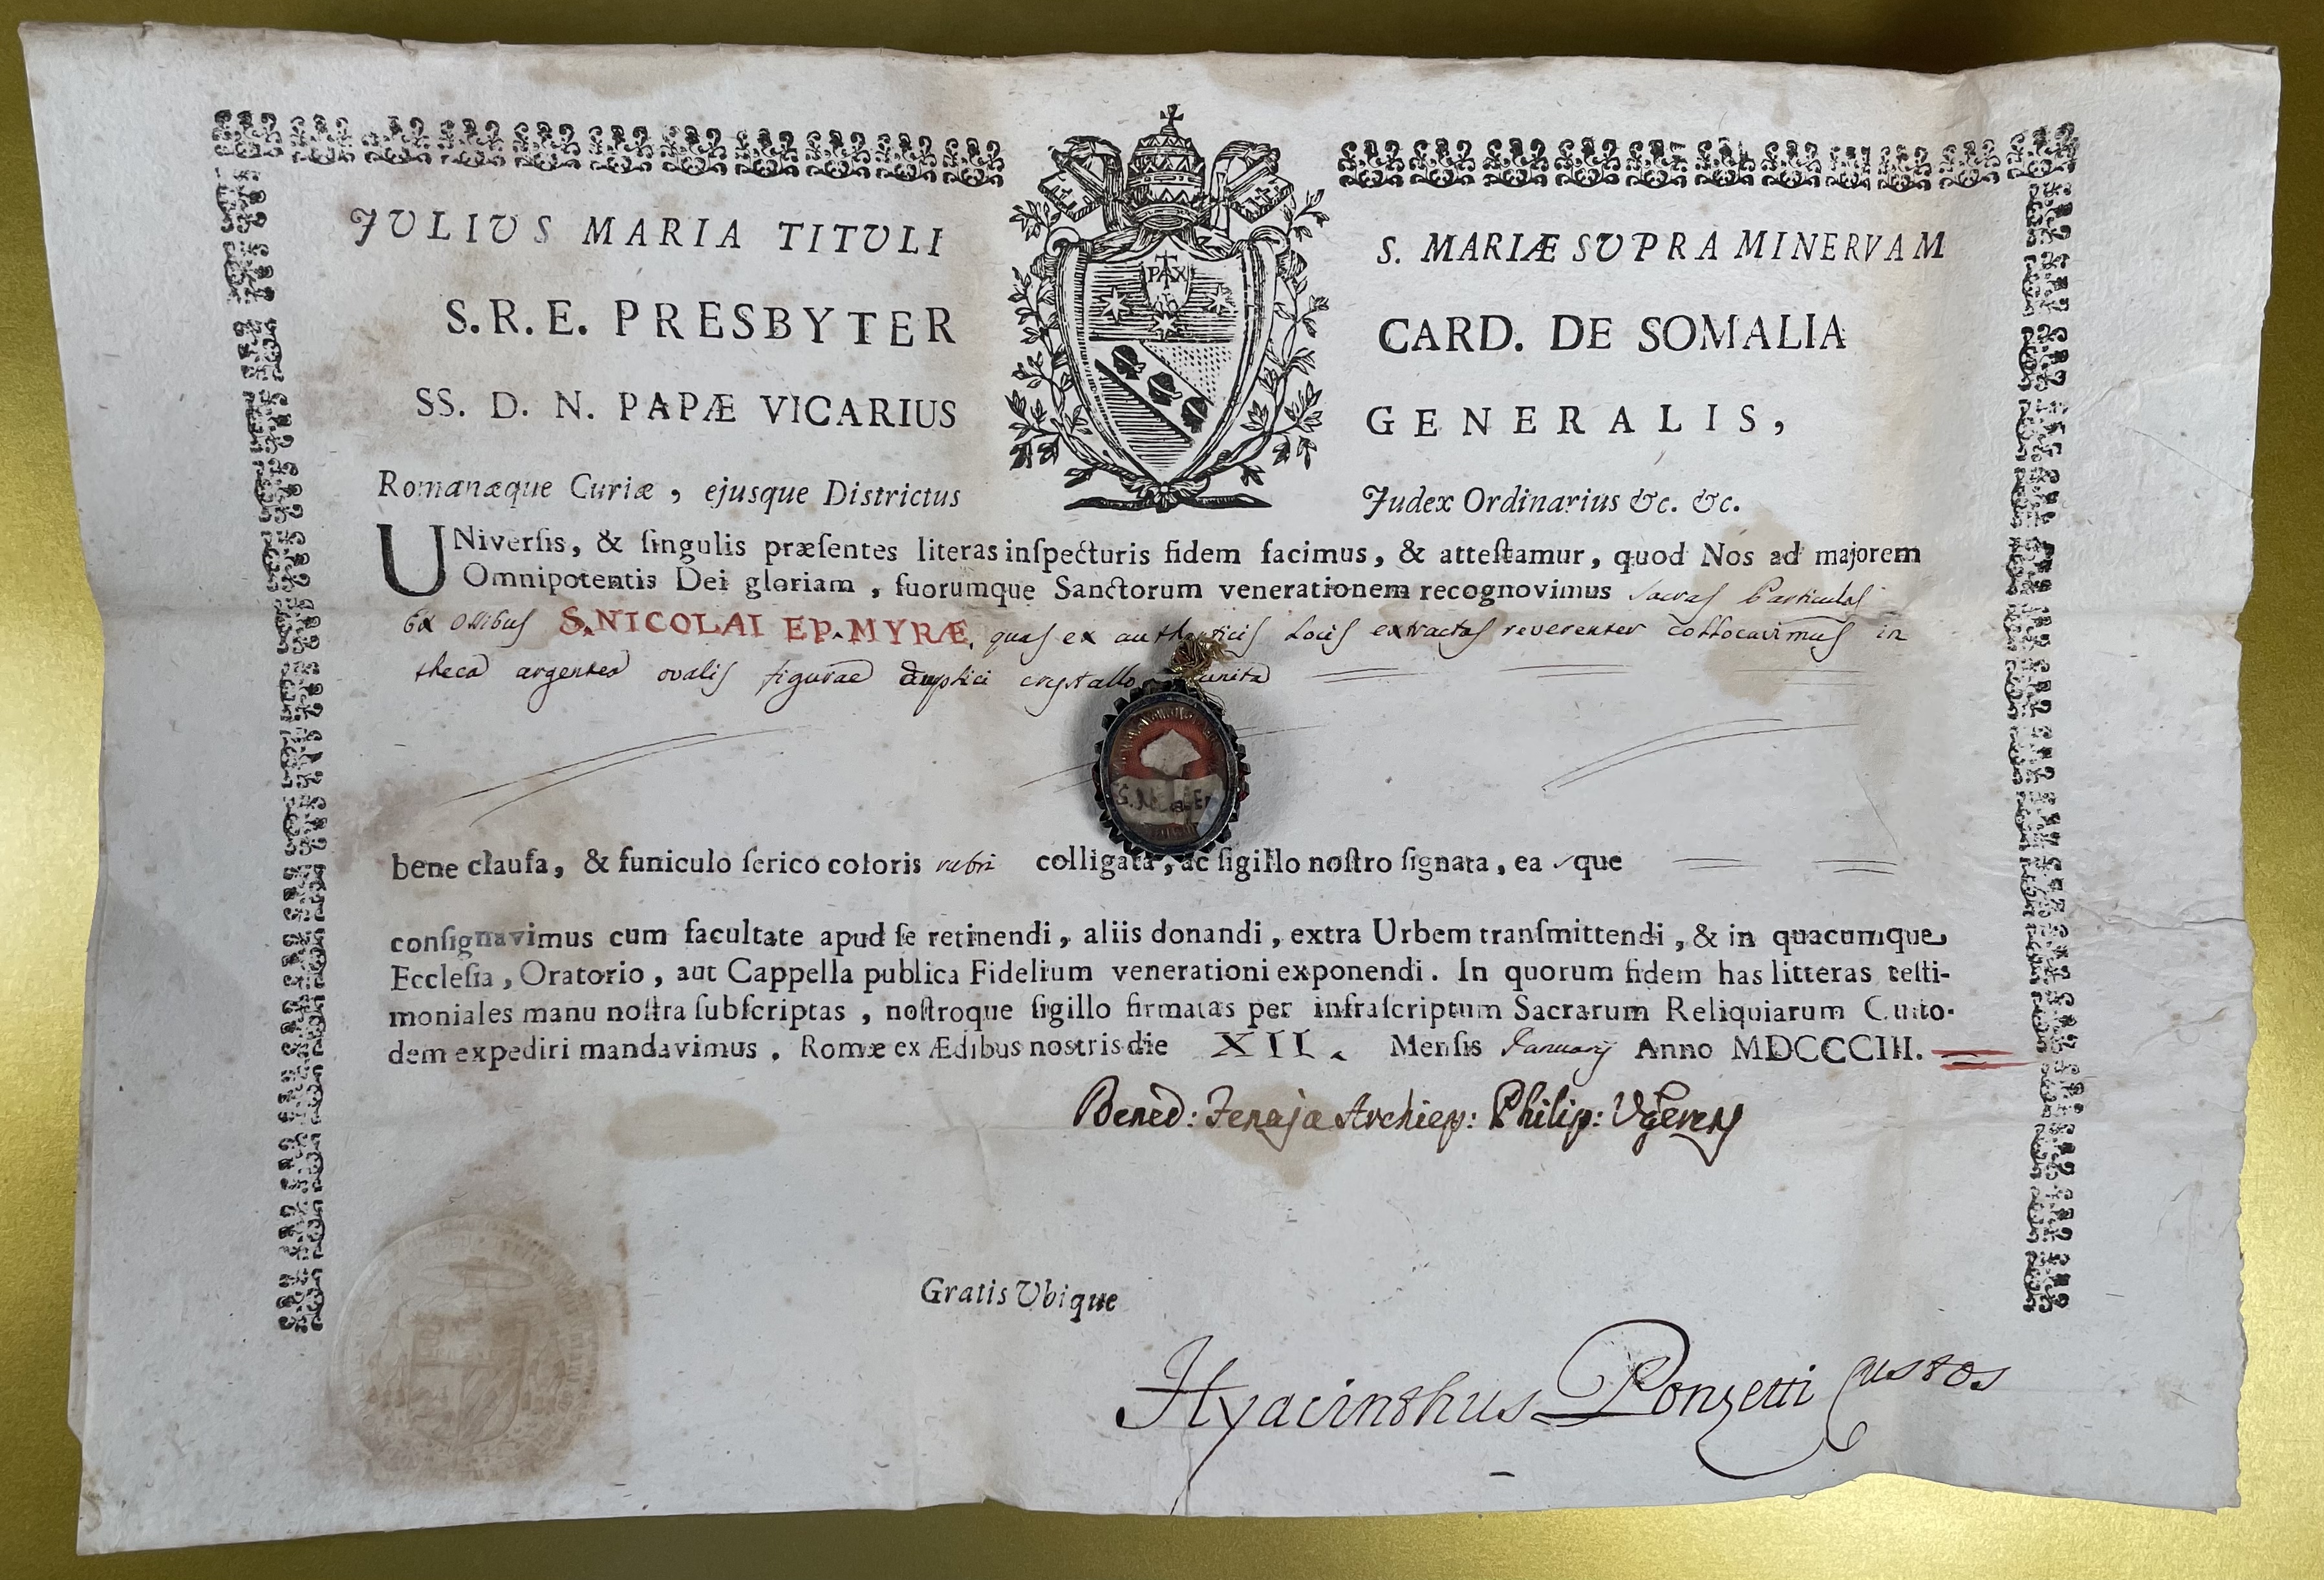 JULIUS MARIA TITULI S. MARIÆ SUPRA MINERVAM
S. R. E. PRESBYTER CARD. DE SOMALIA
SS. D. N. PAPÆ VICARIUS GENERALIS,
PAX
Romanæque Curiæ, ejusque Districtus Judex Ordinarius &c. &c.
UNiverſis, & ſingulis præſentes literas inſpecturis fidem facimus, & atteſtamur, quod Nos ad majorem
Omnipotentis Dei gloriam, ſuorumque Sanctorum venerationem recognovimus sacras Particulas
ex ossibus S. NICOLAI EP. MYRÆ, quas ex authenticis Locis extractas reverenter collocavimus in
theca argentea ovalis figurae duplici crystallo munita
S. Ni Ep
bene clauſa, & funiculo ſerico coloris rubri colligata, ac ſigillo noſtro ſignata, easque
conſignavimus cum facultate apud ſe retinendi, aliis donandi, extra Urbem tranſmittendi, & in quacumque
Eccleſia, Oratorio, aut Cappella publica Fidelium venerationi exponendi. In quorum fidem has litteras teſti-
moniales manu noſtra ſubſcriptas, noſtroque ſigillo firmatas per infraſcriptum Sacrarum Reliquiarum Cuſto-
dem expediri mandavimus. Romæ ex Ædibus nostris die XII. Menſis Januarij Anno MDCCCIII.
Bened: Fenaja Archiep: Philip: Vgerens
Gratis Ubique
Hyacinthus Ponzetti Custos